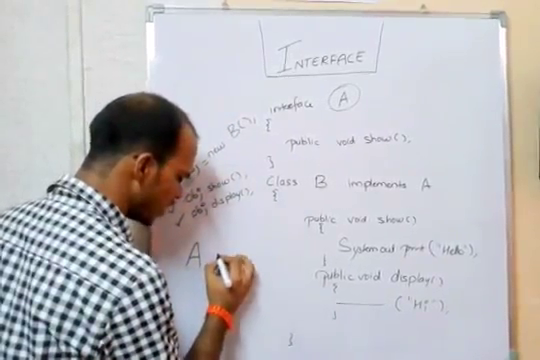 INTERFACE
interface A
{
public void show();
}
Class B implements A
{
public void show()
{
System.out.print("Hello");
}
public void display()
{
("Hi");
}
}
= new B();
obj.show();
✓ obj.display();
A